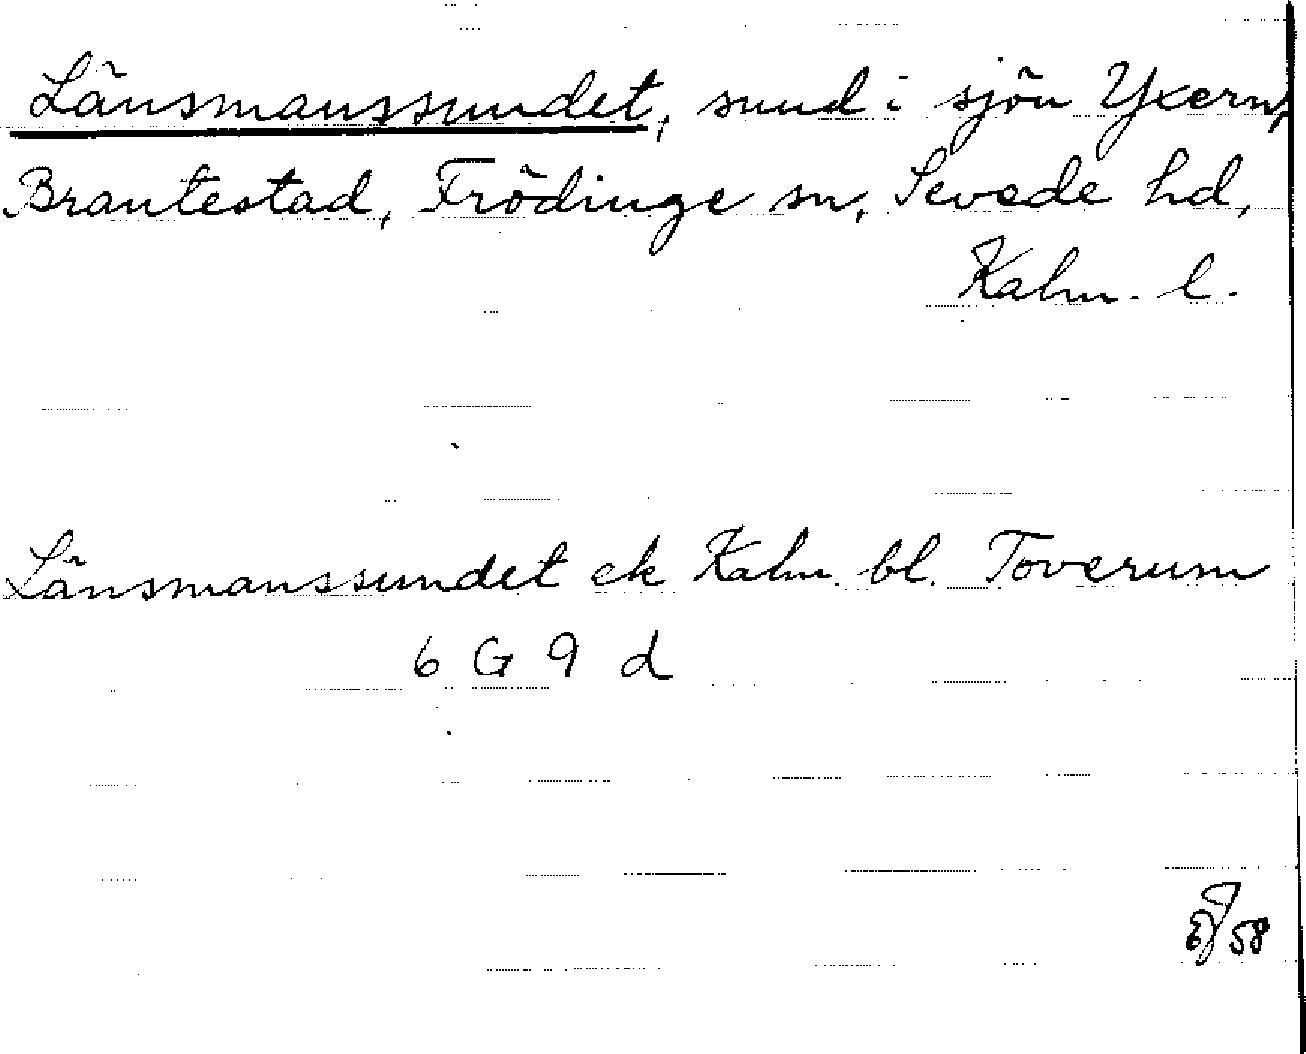 Länsmanssundet, sund i sjön Yxern,
Brantestad, Frödinge sn, Sevede hd,
Kalm. l.
Länsmanssundet ek Kalm. bl. Toverum
6 G 9 d
58